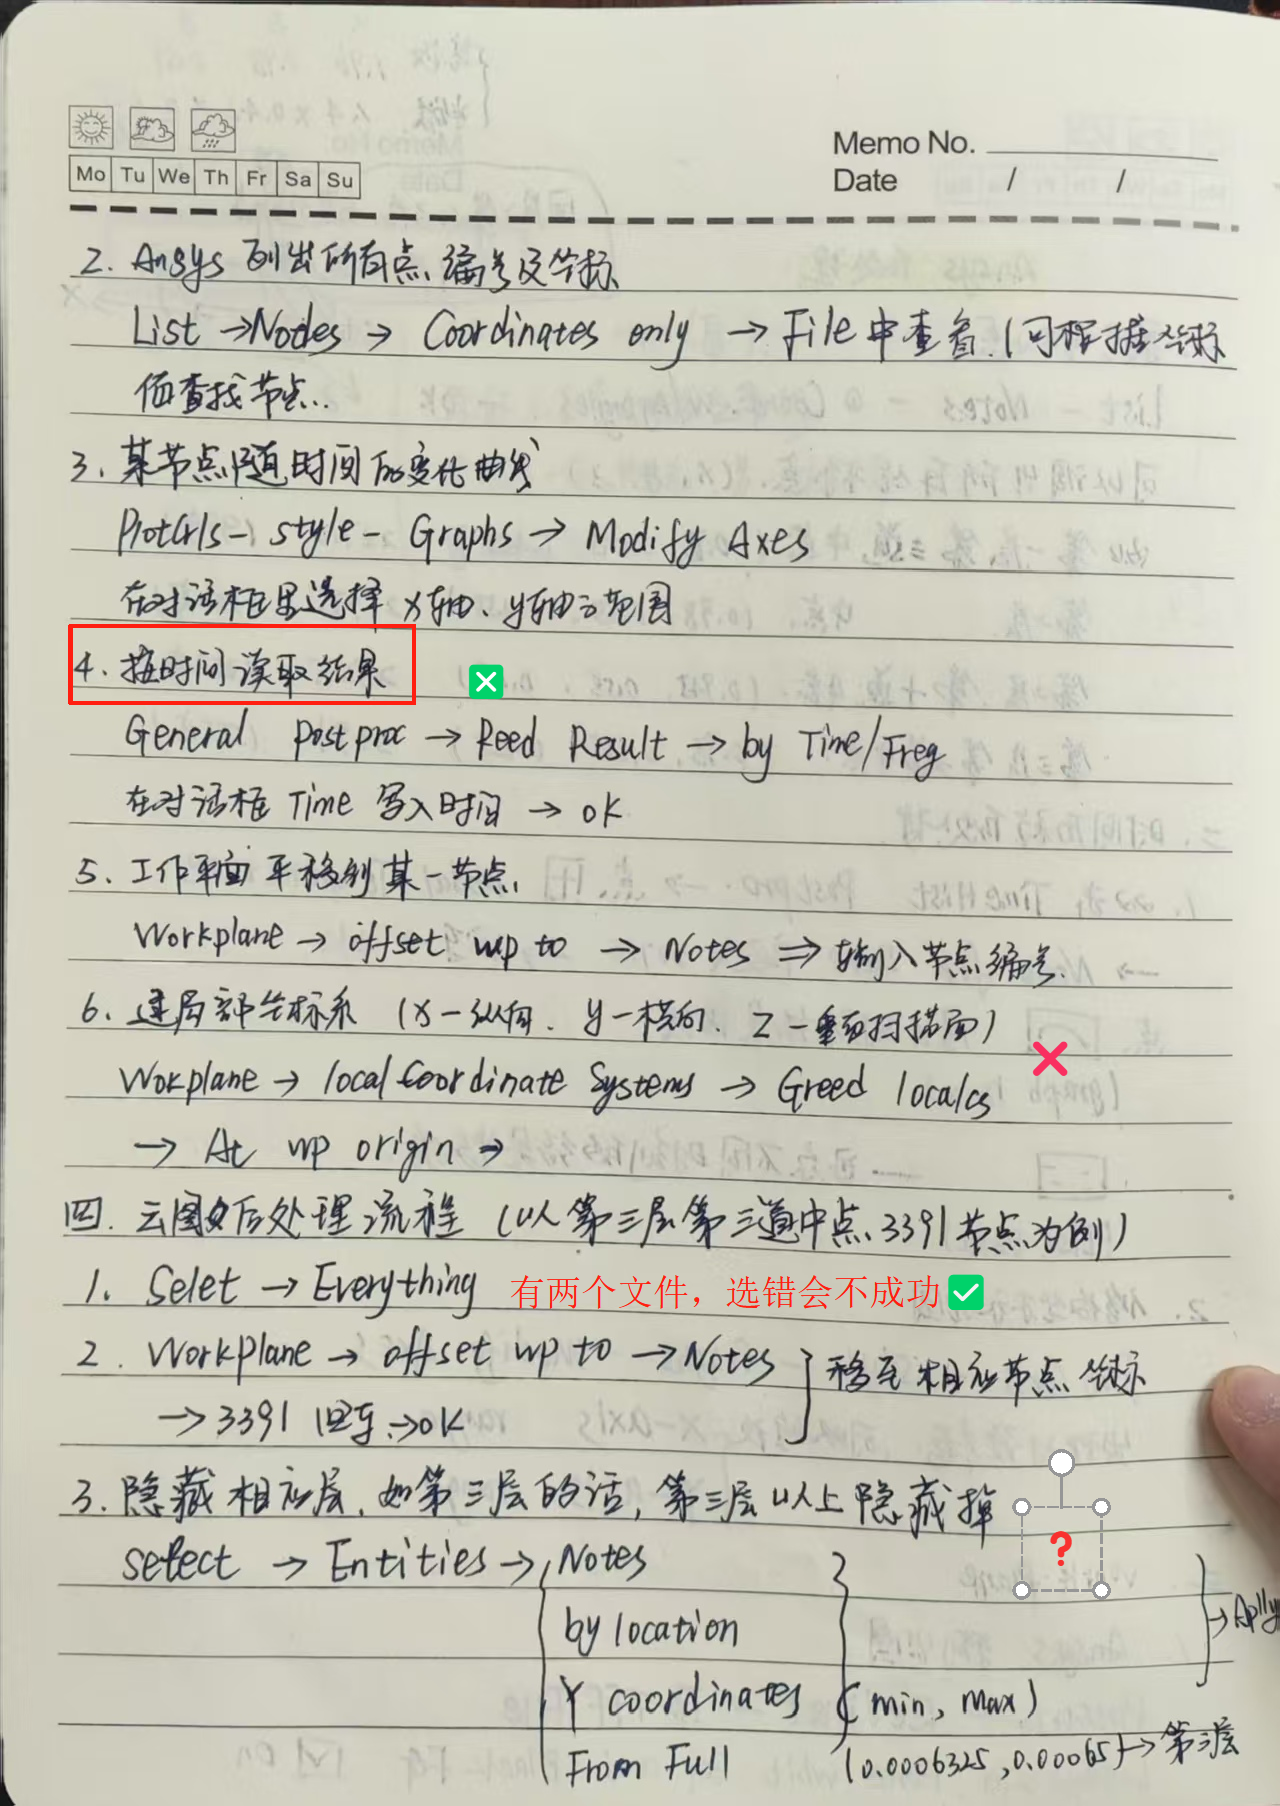 Memo No.
Date / /
Mo Tu We Th Fr Sa Su
2. Ansys 列出所有点编号及坐标
List →Nodes → Coordinates only → File中查看.(可根据坐标
值查找节点..
3. 某节点随时间的变化曲线
PlotCrls - style - Graphs → Modify Axes
在对话框里选择 x轴、y轴之范围
4. 按时间读取结果
General postproc → Reed Result → by Time/Freq
在对话框 Time 写入时间 → ok
5. 工作平面平移到某一节点
Workplane → offset wp to → Notes ⇒ 输入节点编号.
6. 建局部坐标系 (x-纵向. y-横向. z-垂直扫描面)
Wokplane → local Coordinate Systems → Greed localcs
→ At wp origin →
四. 云图后处理流程 (以第三层第三道中点3391节点为例)
1. Selet → Everything 有两个文件，选错会不成功
2. WorkPlane → offset wp to → Notes } 移至相应节点坐标
→ 3391 回车 → ok
3. 隐藏相应层. 如第三层的话, 第三层以上隐藏掉
?
select → Entities → Notes
→ Aplly
by location
Y coordinates (min, max)
From Full (0.0006325, 0.00065) → 第三层